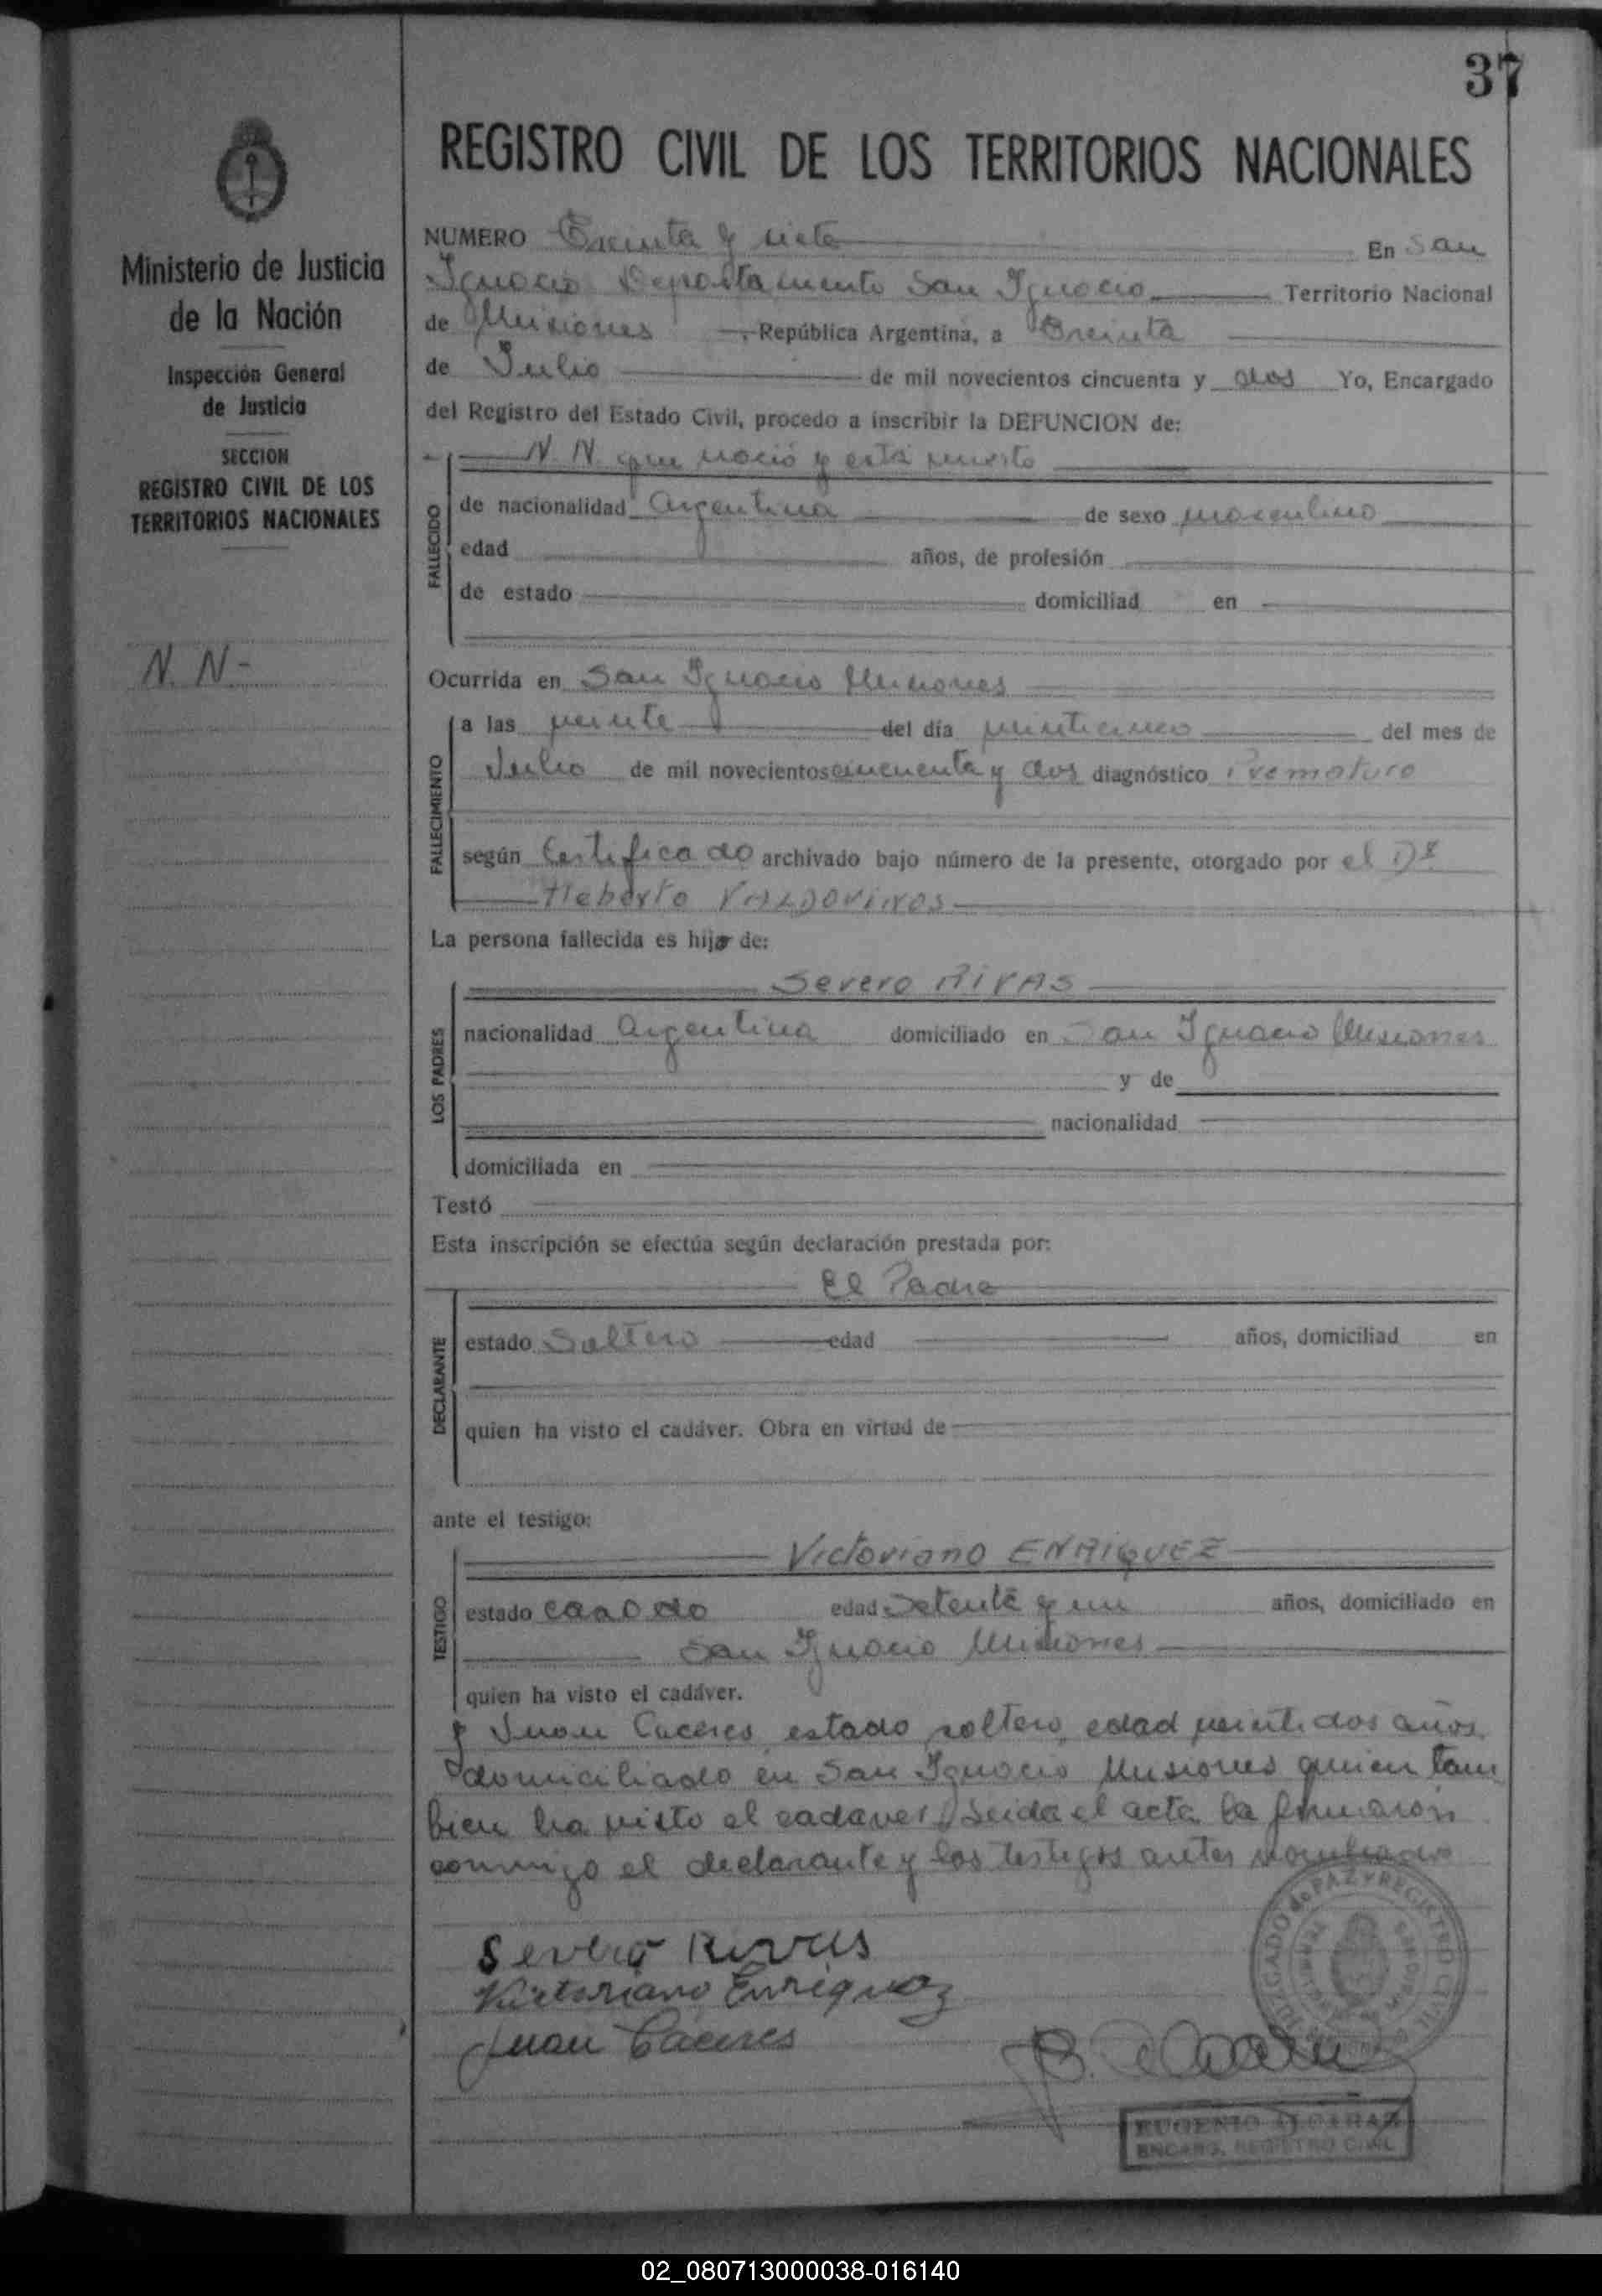 37
REGISTRO CIVIL DE LOS TERRITORIOS NACIONALES
Ministerio de Justicia
de la Nación
Inspección General
de Justicia
SECCION
REGISTRO CIVIL DE LOS
TERRITORIOS NACIONALES
N. N-
NUMERO Treinta y siete En San
Ignacio Departamento San Ignacio Territorio Nacional
de Misiones República Argentina, a Treinta
de Julio de mil novecientos cincuenta y dos Yo, Encargado
del Registro del Estado Civil, procedo a inscribir la DEFUNCION de:
N. N. que nació y está muerto
FALLECIDO
de nacionalidad Argentina de sexo masculino
edad años, de profesión
de estado domiciliad en
Ocurrida en San Ignacio Misiones
FALLECIMIENTO
a las veinte del día veinticinco del mes de
Julio de mil novecientos cincuenta y dos diagnóstico Prematuro
según Certificado archivado bajo número de la presente, otorgado por el Dr
Heberto VALDOVINOS
La persona fallecida es hijo de:
LOS PADRES
Severo RIVAS
nacionalidad Argentina domiciliado en San Ignacio Misiones
y de
nacionalidad
domiciliada en
Testó
Esta inscripción se efectúa según declaración prestada por:
DECLARANTE
El Padre
estado Soltero edad años, domiciliad en
quien ha visto el cadáver. Obra en virtud de
ante el testigo:
TESTIGO
Victoriano ENRIQUEZ
estado casado edad Setenta y un años, domiciliado en
San Ignacio Misiones
quien ha visto el cadáver.
y Juan Caceres, estado soltero, edad veintidos años
domiciliado en San Ignacio Misiones quien tam
bien ha visto el cadaver, Leida el acta la firmaron
conmigo el declarante y los testigos antes nombrados
Severo Rivas
Victoriano Enriquez
Juan Cáceres
JUZGADO de PAZ Y REGISTRO CIVIL
EUGENIO ALCARAZ
ENCARG. REGISTRO CIVIL
02_080713000038-016140